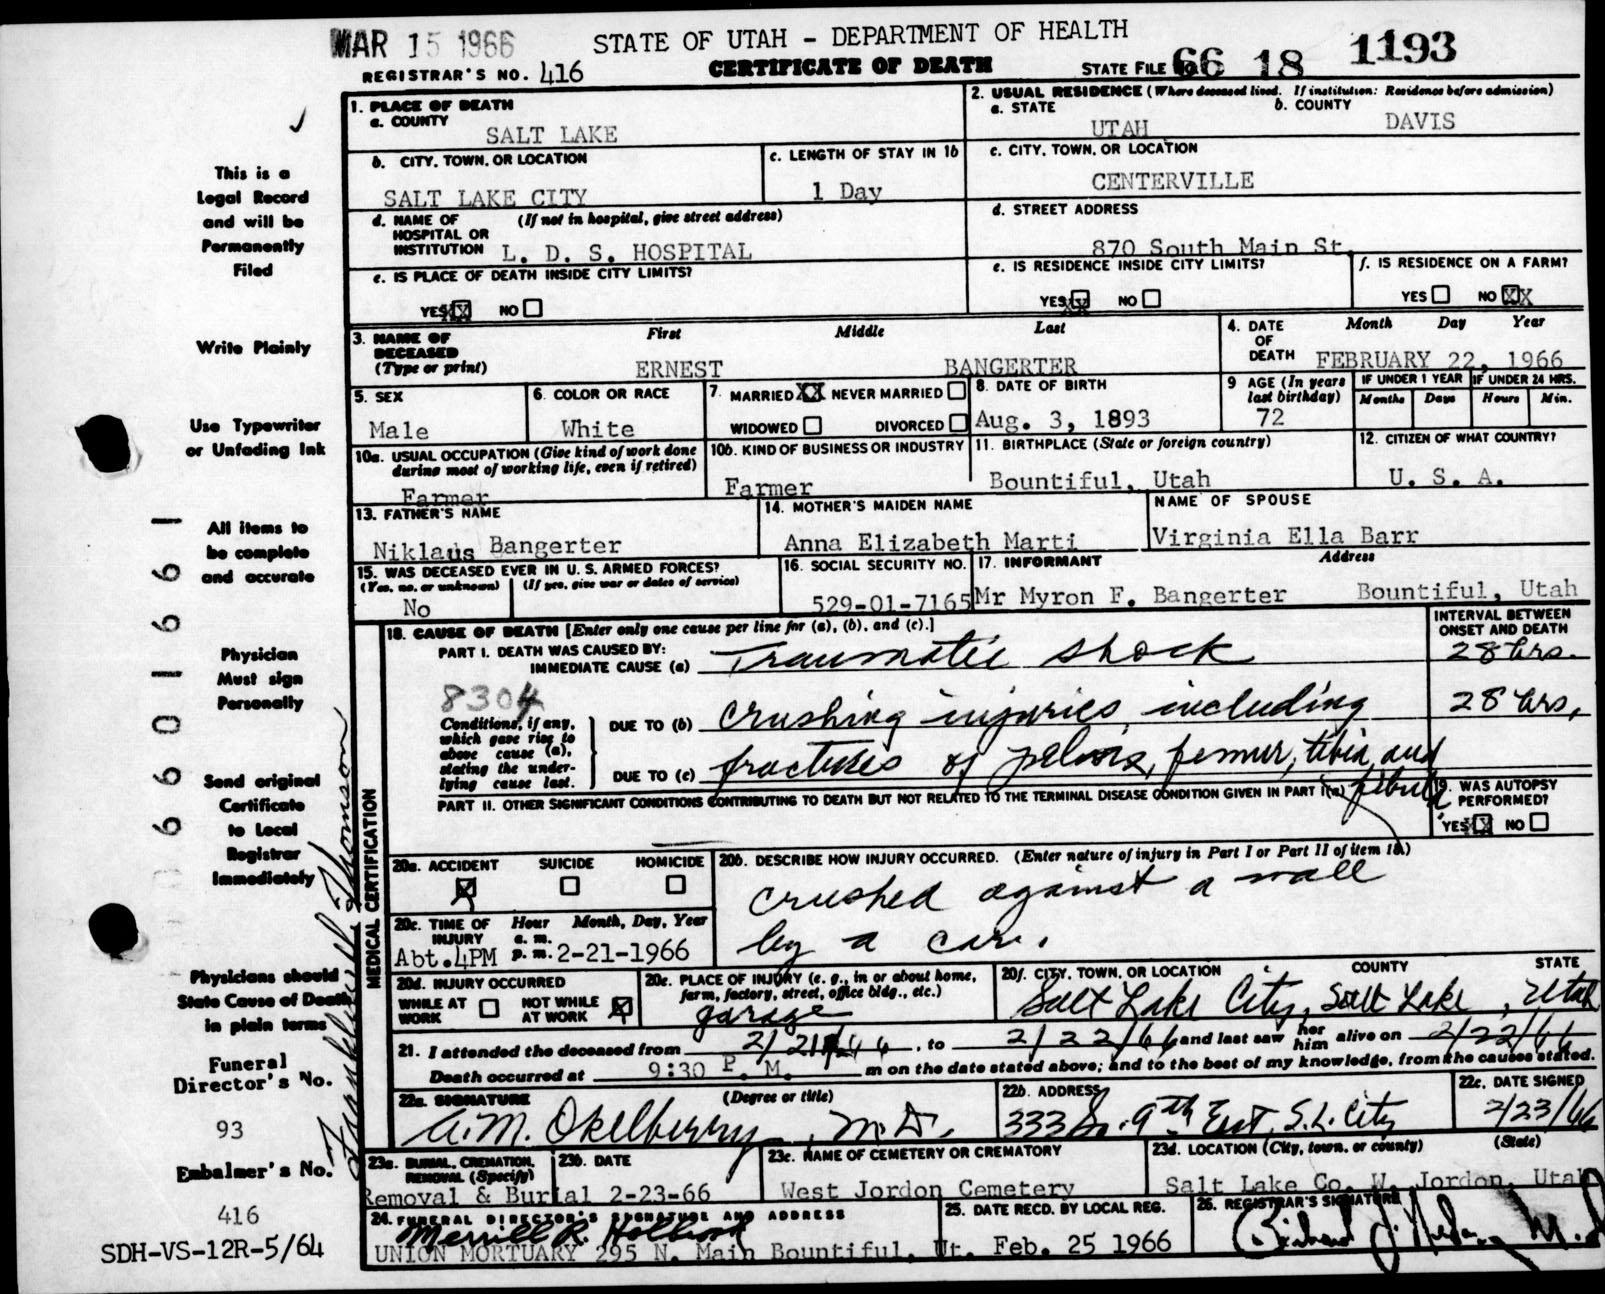 MAR 15 1966
STATE OF UTAH - DEPARTMENT OF HEALTH
REGISTRAR'S NO. 416
CERTIFICATE OF DEATH
STATE FILE NO. 66 18 1193
This is a
Legal Record
and will be
Permanently
Filed
Write Plainly
Use Typewriter
or Unfading Ink
All items to
be complete
and accurate
Physician
Must sign
Personally
Send original
Certificate
to Local
Registrar
Immediately
Physicians should
State Cause of Death
in plain terms
Funeral
Director's No.
93
Embalmer's No.
416
SDH-VS-12R-5/64
1. PLACE OF DEATH
a. COUNTY
SALT LAKE
2. USUAL RESIDENCE (Where deceased lived. If institution: Residence before admission)
a. STATE UTAH
b. COUNTY DAVIS
b. CITY, TOWN, OR LOCATION
SALT LAKE CITY
c. LENGTH OF STAY IN 1b
1 Day
c. CITY, TOWN, OR LOCATION
CENTERVILLE
d. NAME OF HOSPITAL OR INSTITUTION (If not in hospital, give street address)
L. D. S. HOSPITAL
d. STREET ADDRESS
870 South Main St.
e. IS PLACE OF DEATH INSIDE CITY LIMITS?
YES XX NO
e. IS RESIDENCE INSIDE CITY LIMITS?
YES XX NO
f. IS RESIDENCE ON A FARM?
YES NO XX
3. NAME OF DECEASED (Type or print)
First Middle Last
ERNEST BANGERTER
4. DATE OF DEATH Month Day Year
FEBRUARY 22, 1966
5. SEX
Male
6. COLOR OR RACE
White
7. MARRIED XX NEVER MARRIED
WIDOWED DIVORCED
8. DATE OF BIRTH
Aug. 3, 1893
9 AGE (In years last birthday)
72
IF UNDER 1 YEAR
Months Days
IF UNDER 24 HRS.
Hours Min.
10a. USUAL OCCUPATION (Give kind of work done during most of working life, even if retired)
Farmer
10b. KIND OF BUSINESS OR INDUSTRY
Farmer
11. BIRTHPLACE (State or foreign country)
Bountiful, Utah
12. CITIZEN OF WHAT COUNTRY?
U. S. A.
13. FATHER'S NAME
Niklaus Bangerter
14. MOTHER'S MAIDEN NAME
Anna Elizabeth Marti
NAME OF SPOUSE
Virginia Ella Barr
15. WAS DECEASED EVER IN U. S. ARMED FORCES?
(Yes, no, or unknown) (If yes, give war or dates of service)
No
16. SOCIAL SECURITY NO.
529-01-7165
17. INFORMANT Address
Mr Myron F. Bangerter Bountiful, Utah
18. CAUSE OF DEATH [Enter only one cause per line for (a), (b), and (c).]
INTERVAL BETWEEN ONSET AND DEATH
PART I. DEATH WAS CAUSED BY:
IMMEDIATE CAUSE (a) Traumatic shock 28 hrs.
8304
Conditions, if any, which gave rise to above cause (a), stating the underlying cause last.
DUE TO (b) crushing injuries, including 28 hrs.
DUE TO (c) fractures of pelvis, femur, tibia, and fibula
PART II. OTHER SIGNIFICANT CONDITIONS CONTRIBUTING TO DEATH BUT NOT RELATED TO THE TERMINAL DISEASE CONDITION GIVEN IN PART I(a)
19. WAS AUTOPSY PERFORMED?
YES X NO
MEDICAL CERTIFICATION
20a. ACCIDENT SUICIDE HOMICIDE
X
20b. DESCRIBE HOW INJURY OCCURRED. (Enter nature of injury in Part I or Part II of item 18.)
crushed against a wall
by a car.
20c. TIME OF INJURY Hour Month, Day, Year
a. m.
p. m.
Abt. 4PM 2-21-1966
20d. INJURY OCCURRED
WHILE AT WORK NOT WHILE AT WORK X
20e. PLACE OF INJURY (e. g., in or about home, farm, factory, street, office bldg., etc.)
garage
20f. CITY, TOWN, OR LOCATION COUNTY STATE
Salt Lake City, Salt Lake, Utah
21. I attended the deceased from 2/21/66, to 2/22/66 and last saw her him alive on 2/22/66
Death occurred at 9:30 P. M. m on the date stated above; and to the best of my knowledge, from the causes stated.
22a. SIGNATURE (Degree or title)
A.M. Okelberry, M.D.
22b. ADDRESS
333 So. 9th East, S.L. City
22c. DATE SIGNED
2/23/66
23a. BURIAL, CREMATION, REMOVAL (Specify)
Removal & Burial
23b. DATE
2-23-66
23c. NAME OF CEMETERY OR CREMATORY
West Jordon Cemetery
23d. LOCATION (City, town, or county) (State)
Salt Lake Co. W. Jordon, Utah
24. FUNERAL DIRECTOR'S SIGNATURE AND ADDRESS
Merrill R. Holbrook
UNION MORTUARY 295 N. Main Bountiful, Ut.
25. DATE RECD. BY LOCAL REG.
Feb. 25 1966
26. REGISTRAR'S SIGNATURE